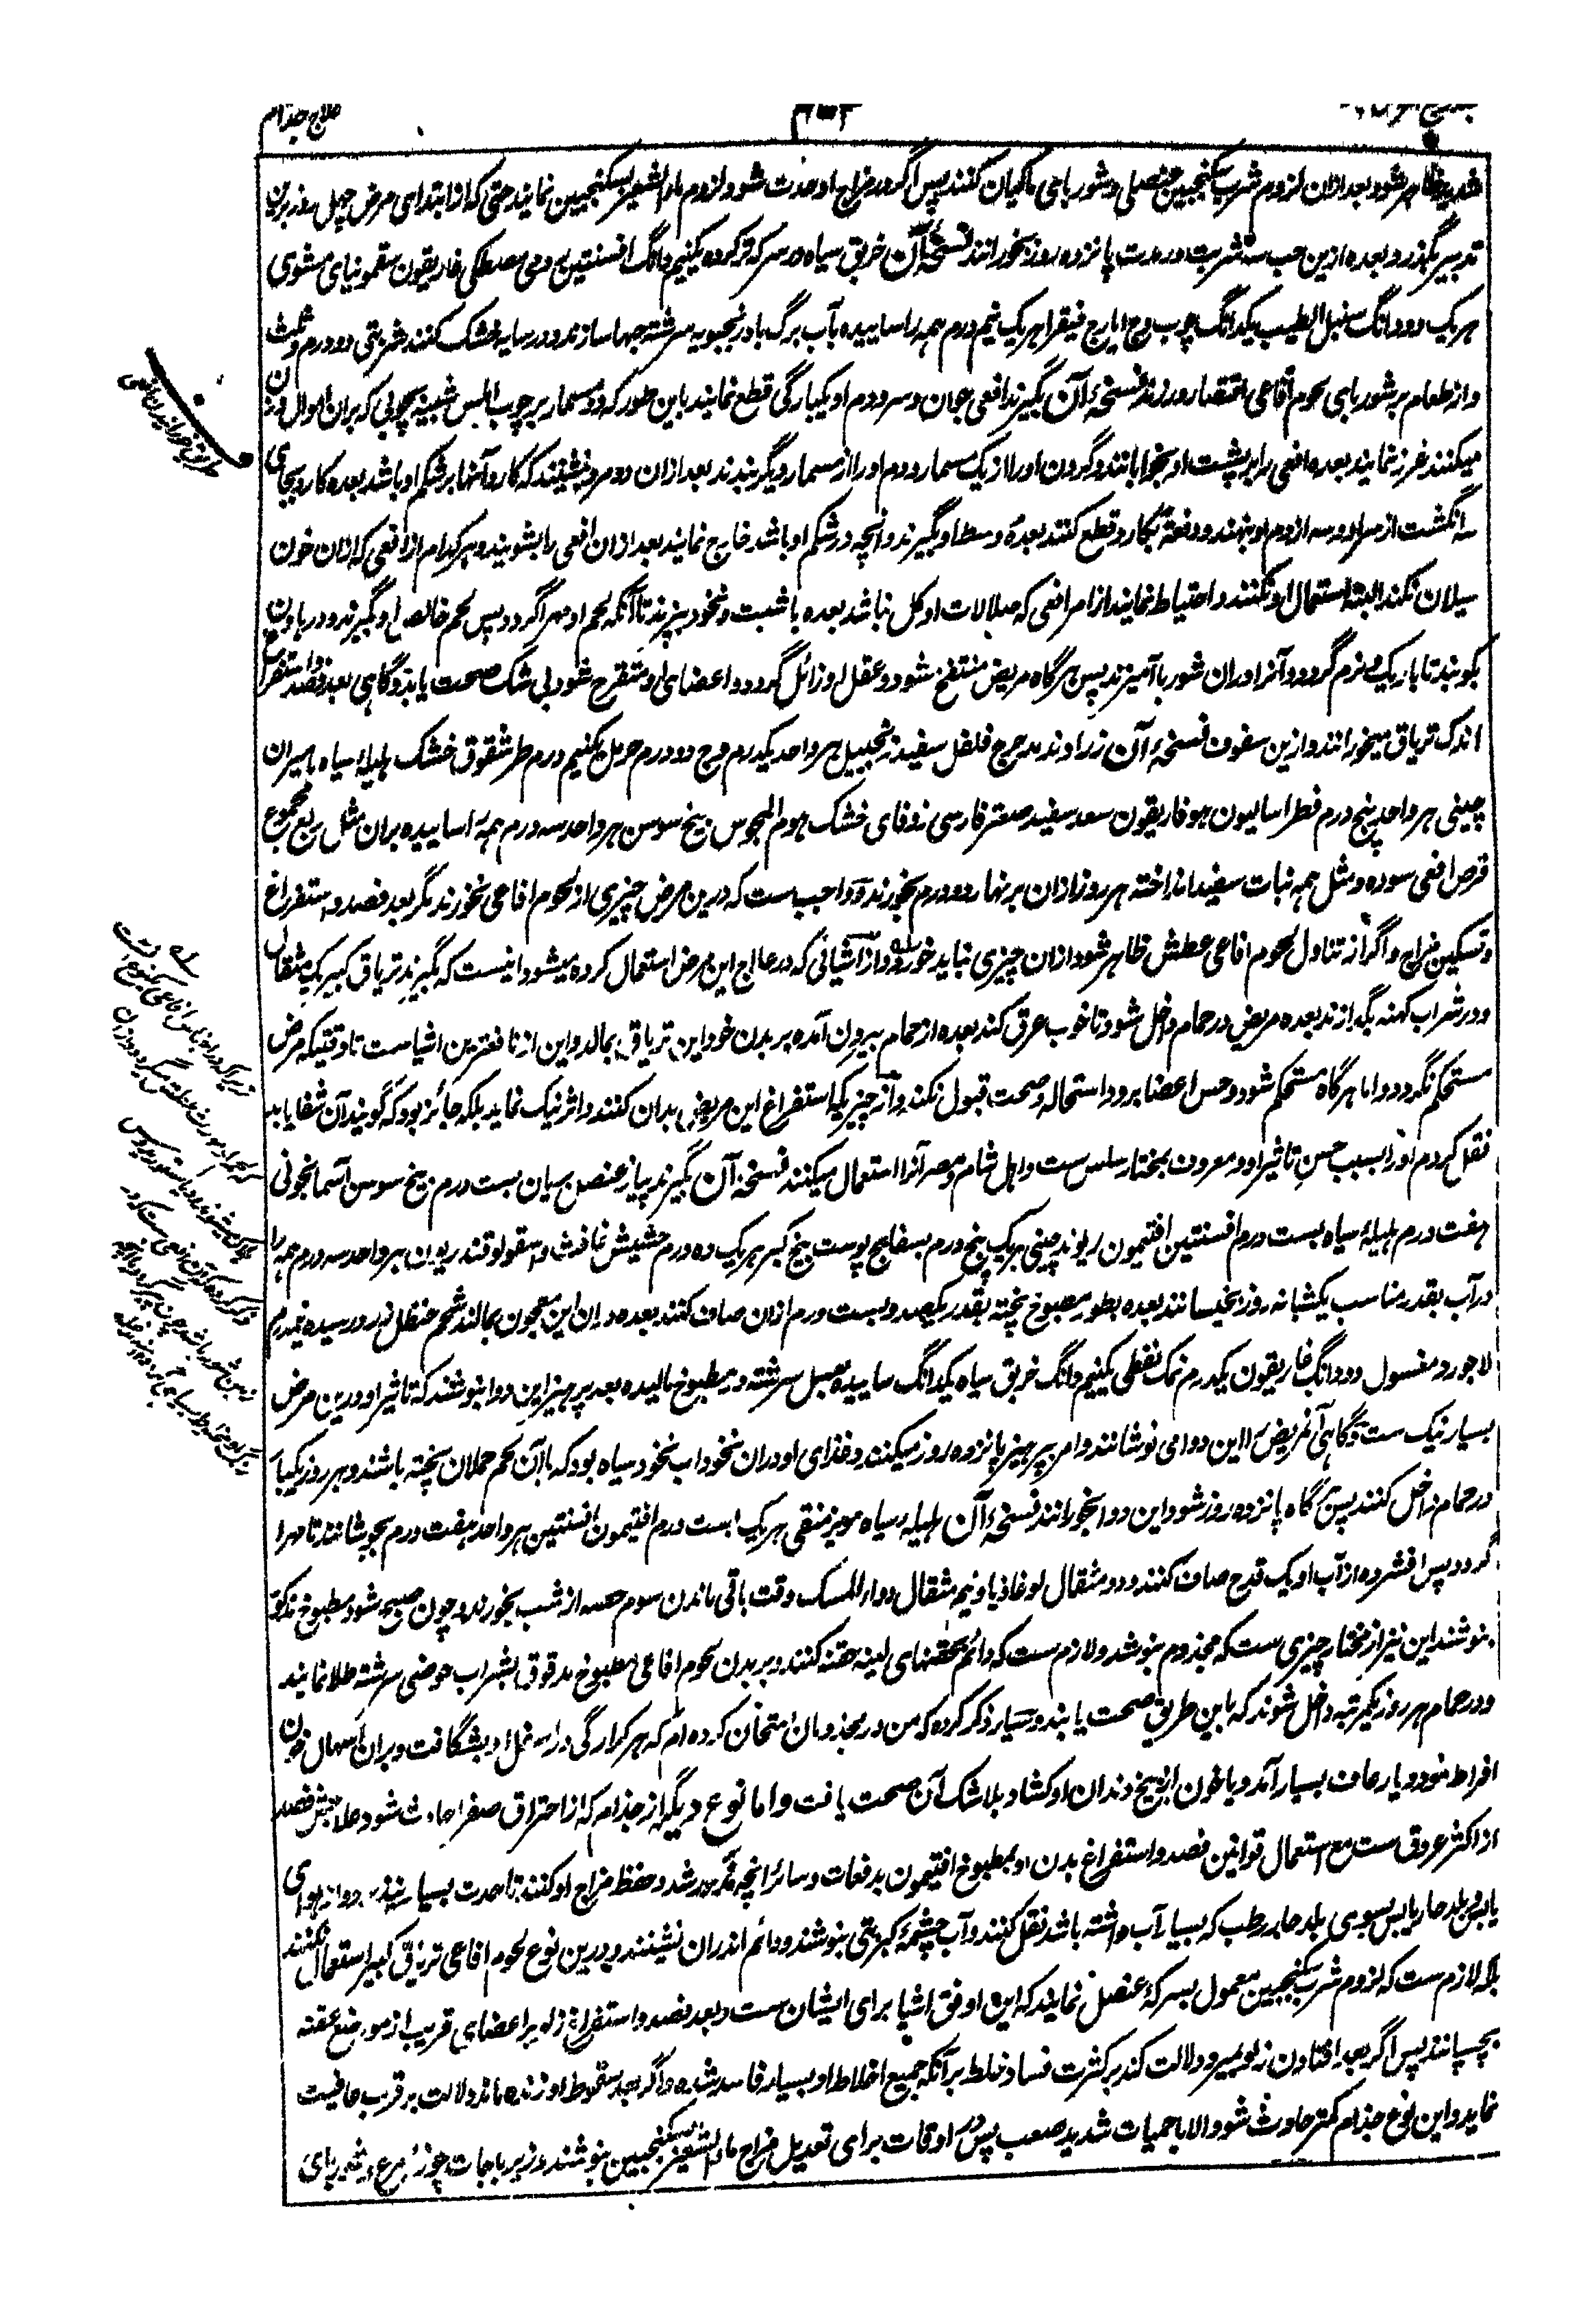 علاج جذام
ظاهر شود بعد ازان لزوم شرب سکنجبین عنصلی و شوربای ماکیان کنند پس اگر در مزاج او حدت شود لزوم ماء الشعیر بسکنجبین نمایند حتی که از ابتدای مرض چهل روز برین
تدبیر بگذرد و بعده ازین حب سه شربت در مدت پانزده روز بخورانند نسخه آن خربق سیاه در سرکه تر کرده یکنیم دانگ افسنتین رومی مصطکی غاریقون سقمونیای مشوی
هریک دو دانگ سنبل الطیب یکدانگ چوب وج ایارج فیقرا هریک نیم درم همه را ساییده بآب برگ بادرنجبویه سرشته حبها سازند و در سایه خشک کنند شربتی دو درم و ثلث
و از طعام بر شوربای لحوم افاعی اقتصار ورزند نسخهٔ آن بگیرند افعی جوان و سر و دم او یکبارگی قطع نمایند باین طور که دو مسمار بر چوب املس شبیه بچوبی که بران اموال وزن
میکنند غرز نمایند بعده افعی را بر پشت او بخوابانند و گردن او را از یک مسمار و دم او را از مسمار دیگر بندند بعد ازان دو مرد بنشینند که کارد آنها بر شکم او باشد بعده کارد بجای
سه انگشت از سر او و سه از دم او بنهند و دفعةً بکارد قطع کنند بعدهٔ وسط او بگیرند و انچه در شکم او باشد خارج نمایند بعد ازان افعی را بشویند و هر کدام از افعی که ازان خون
سیلان نکند البته استعمال او نکنند و احتیاط نمایند از امر افعی که صلالات اوکل نباشد بعده با شبت و نخود بپزند تا آنکه لحم او مهرا گردد پس لحم خالص او بگیرند و در هاون
بکوبند تا باریک و نرم گردد و آنرا دران شوربا آمیزند پس هرگاه مریض منتفخ شود و عقل او زائل گردد و اعضای او متقرح شود بی شک صحت یابد و گاهی بعد فصد و استفراغ
اندک تریاق میخورانند و ازین سفوف نسخهٔ آن زراوند مدحرج فلفل سفید زنجبیل هر واحد یکدرم وج دو درم حرمل یکنیم درم طرشقوق خشک هلیلهٔ سیاه مامیران
چینی هر واحد پنج درم فطراسالیون هوفاریقون سعد سفید صعتر فارسی زوفای خشک هوم المجوس بیخ سوسن هر واحد سه درم همه را ساییده بران مثل ربع مجموع
قرص افعی سوده و مثل همه نبات سفید انداخته هر روز ازان بر نهار دو درم بخورند و واجب ست که درین مرض چیزی از لحوم افاعی نخورند مگر بعد فصد و استفراغ
و تسکین مزاج و اگر از تناول لحوم افاعی عطش ظاهر شود ازان چیزی نباید خورد و از اشیائی که در علاج این مرض استعمال کرده میشود اینست که بگیرند تریاق کبیر یک مثقال
و در شراب کهنه بگدازند بعده مریض در حمام داخل شود تا خوب عرق کند بعده از حمام بیرون آمده بر بدن خود این تریاق بمالد و این از نافعترین اشیاست تا وقتیکه مرض
مستحکم نگردد و اما هرگاه مستحکم شود و حس اعضا برود استحاله و صحت قبول نکند و از چیزیکه استفراغ این مریض بدان کنند و اثر نیک نماید بلکه جائز بود که گویند آن شفا یابد
نقل کردم او را بسبب حسن تاثیر او و معروف بمختار سلس ست و اهل شام و مصر آنرا استعمال میکنند نسخهٔ آن بگیرند پیاز عنصل بریان بست درم بیخ سوسن آسمانجونی
هفت درم هلیلهٔ سیاه بست درم افسنتین افتیمون ریوند چینی هریک پنج درم بسفایج پوست بیخ کبر هریک ده درم حشیش غافث و سقولوقندریون هر واحد سه درم همه را
در آب بقدر مناسب یکشبانه روز بخیسانند بعده بطور مطبوخ پخته بقدر یکصد و بست درم ازان صاف کنند بعده دران این معجون بمالند شحم حنظل زرد رسیده نیم درم
لاجورد مغسول دو دانگ غاریقون یکدرم نمک نفطی یکنیم دانگ خربق سیاه یکدانگ ساییده بعسل سرشته و بمطبوخ مالیده بعد پرهیز این دوا بنوشند که تاثیر او درین مرض
بسیار نیک ست و گاهی آنمریض را این دوا می نوشانند و امر بپرهیز پانزده روز میکنند و غذای او دران نخوداب نخود سیاه بود که با آن لحم حملان پخته باشند و هر روز یکبار
در حمام داخل کنند پس هرگاه پانزده روز شود این دوا بخورانند نسخهٔ آن هلیلهٔ سیاه مویز منقی هریک بست درم افتیمون افسنتین هر واحد هفت درم بجوشانند تا مهرا
گردد پس افشرده از آب او یک قدح صاف کنند و دو مثقال لوغاذیا و نیم مثقال دواء المسک وقت باقی ماندن سوم حصه از شب بخورند و چون صبح شود مطبوخ مذکور
بنوشند این نیز از مختار چیزی ست که مجذوم بنوشد و لازم ست که دائم بحقنهای لینه حقنه کنند و بر بدن لحوم افاعی مطبوخ مدقوق بشراب حوضی سرشته طلا نمایند
و در حمام هر روز یکمرتبه داخل شوند که باین طریق صحت یابند و بسیار ذکر کرده که من در مجذومان امتحان کرده ام که هر کرا رگی در اسفل او بشگافت و بران اسهال خون
افراط نمود و یا رعاف بسیار آمد و یا خون از بیخ دندان او کشاد بلاشک آن صحت یافت و اما نوع دیگر از جذام که از احتراق صفرا حادث شود علاجش فصد
از اکثر عروق ست مع استعمال قوانین فصد و استفراغ بدن او بمطبوخ افتیمون بدفعات و سائر انچه مذکور شد و حفظ مزاج او کنند تا مدت بسیار و از هوای
یابس و بلد حار یابس بسوی بلد حار رطب که بسیار آب داشته باشد نقل کنند و آب چشمهٔ کبریتی بنوشند و دائم اندران نشینند و درین نوع لحوم افاعی تریاق کبیر استعمال نکنند
بلکه لازم ست که لزوم شرب سکنجبین معمول بسرکهٔ عنصل نمایند که این اوفق اشیا برای ایشان ست و بعد فصد و استفراغ زلو بر اعضای قریب از موضع عفنه
بچسپانند پس اگر بعد افتادن زلو بمیرد دلالت کند بر کثرت فساد خلط بر آنکه جمیع اخلاط او بسیار فاسد شده و اگر بعد سقوط او زنده ماند دلالت بر قرب عافیت
نماید و این نوع جذام کمتر حادث شود و الا با حمیات شدید صعب پس در اوقات برای تعدیل مزاج ماء الشعیر بسکنجبین بنوشند و زیرباجات چوزهٔ مرغ و شوربای